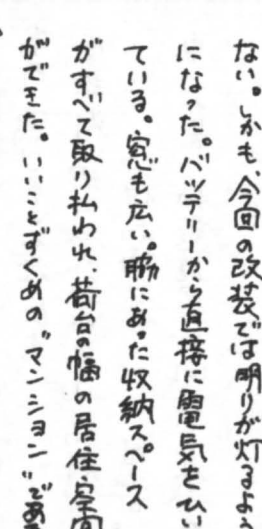 ない。しかも、今回の改装では明りが灯るよう
になった。バッテリーから直接に電気をひい
ている。窓も広い。脇にあった収納スペース
がすべて取り払われ、荷台の幅の居住空間
ができた。いいことずくめの“マンション”であ